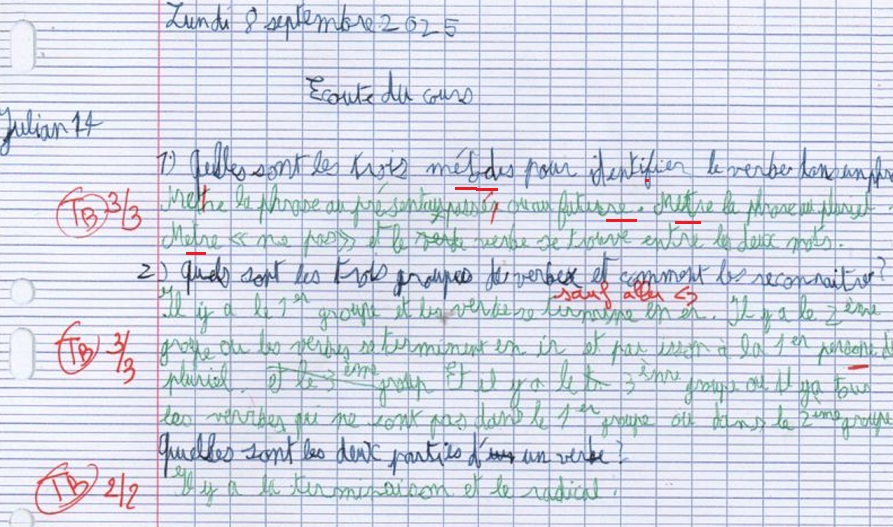 Lundi 8 septembre 2025
Ecoute du cours
Julian 14
1) Quelles sont les trois métdes pour identifier le verbe dans un phr
TB 3/3
Mettre la phrase au présent, passé, ou au futur. Métre la phrase au pluriel.
Metre « ne pas » et le verbe se trouve entre les deux mots.
2) Quels sont les trois groupes de verbes et comment les reconnaitre?
sauf aller
Il y a le 1er groupe et les verbe se termine en er. Il y a le 2ème
TB 3/3
groupe ou les verbes se terminent en ir et par isson à la 1er persone d
pluriel. et le 3ème group Et il y a le 3ème groupe ou il y a tous
les verbes qui ne sont pas dans le 1er groupe ou dans le 2ème groupe
Quelles sont les deux parties d'un verbe?
TB 2/2
Il y a la terminaison et le radical.